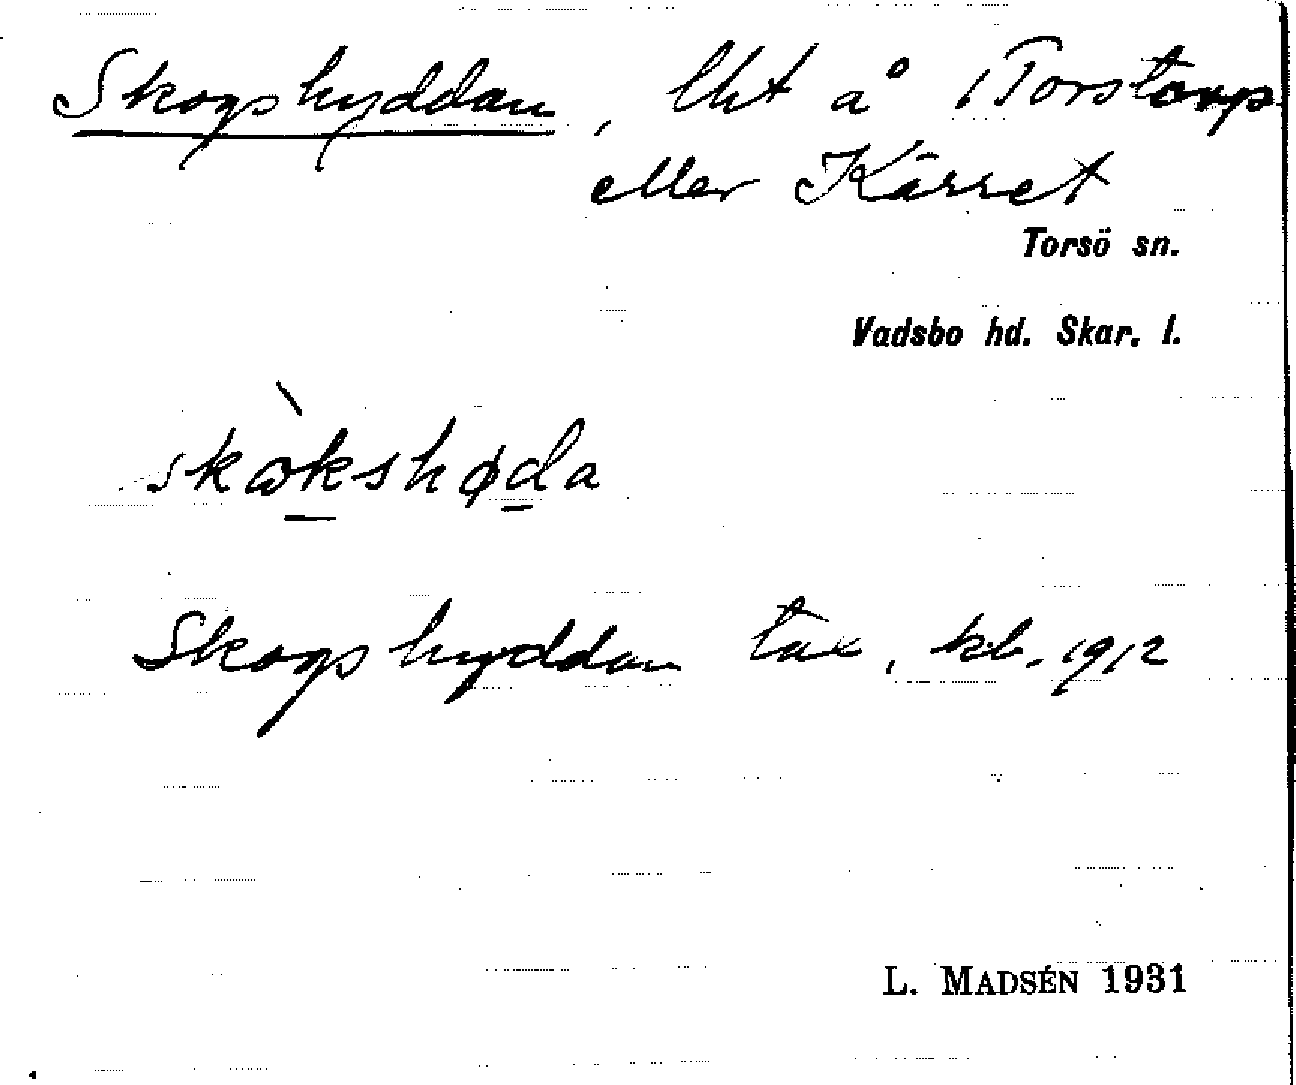 Skogshyddan, lht å Torstorp
eller Kärret
Torsö sn.
Vadsbo hd. Skar. l.
skò̀kshøda
Skogshyddan tax, kb. 1912
L. MADSÉN 1931